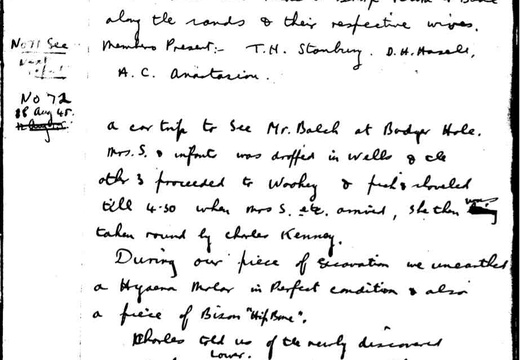 along the sands & their respective wives.
Members Present:- T.H. Stanbury. D.H. Hasell,
A.C. Anastasiou.
No 71 See
No 72
18 Aug 45.
a car trip to See Mr. Balch at Badger Hole.
Mrs. S. & infants was dropped in Wells & the
other 3 proceeded to Wookey & shoveled
till 4.50 when Mrs S. etc. arrived, She then was
taken round by Charles Kenney.
During our piece of Excavation we unearthed
a Hyaena Molar in Perfect condition & also
a piece of Bison "Hip Bone".
Charles told us of the newly discovered
Lower.